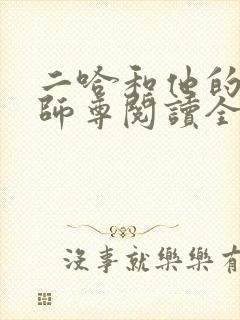 二哈和他的
師尊閱讀全
沒事就樂樂有